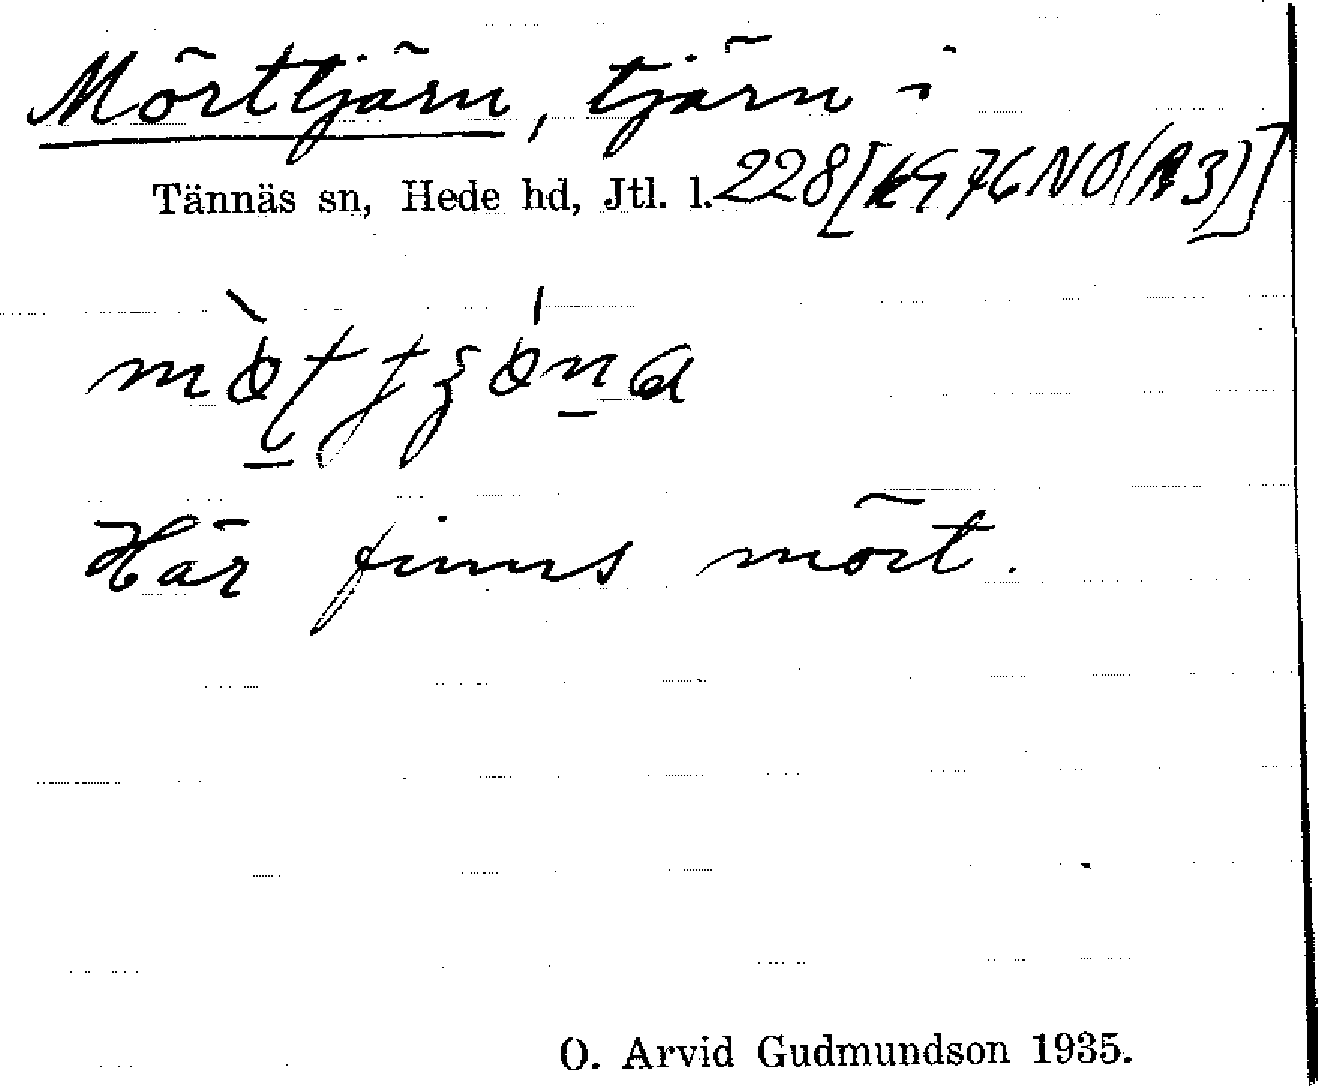 Mörttjärn, tjärn i
Tännäs sn, Hede hd, Jtl. l. 228
Här finns mört.
O. Arvid Gudmundson 1935.